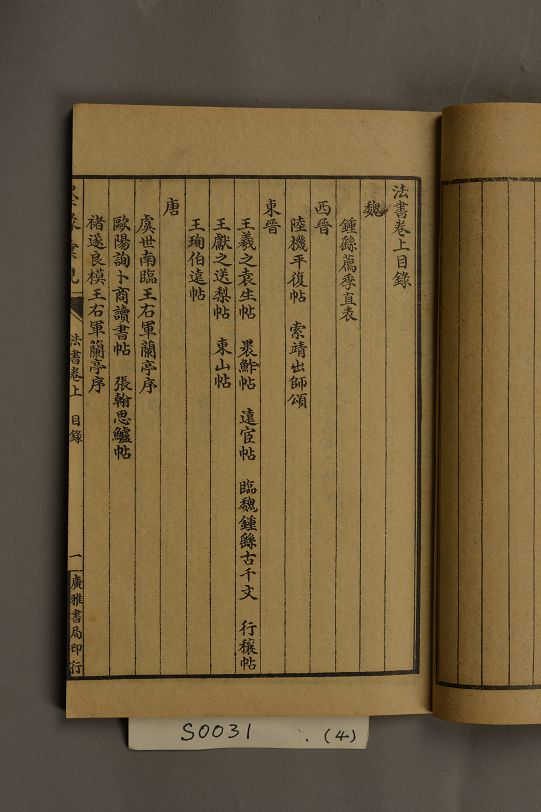 法書卷上目錄
魏
鍾繇薦季直表
西晉
陸機平復帖 索靖出師頌
東晉
王羲之袁生帖 褁鮓帖 遠宦帖 臨魏鍾繇古千文 行穰帖
王獻之送梨帖 東山帖
王珣伯遠帖
唐
虞世南臨王右軍蘭亭序
歐陽詢卜商讀書帖 張翰思鱸帖
褚遂良模王右軍蘭亭序
墨緣彙觀 法書卷上 目錄 一 廣雅書局印行
S0031 (4)